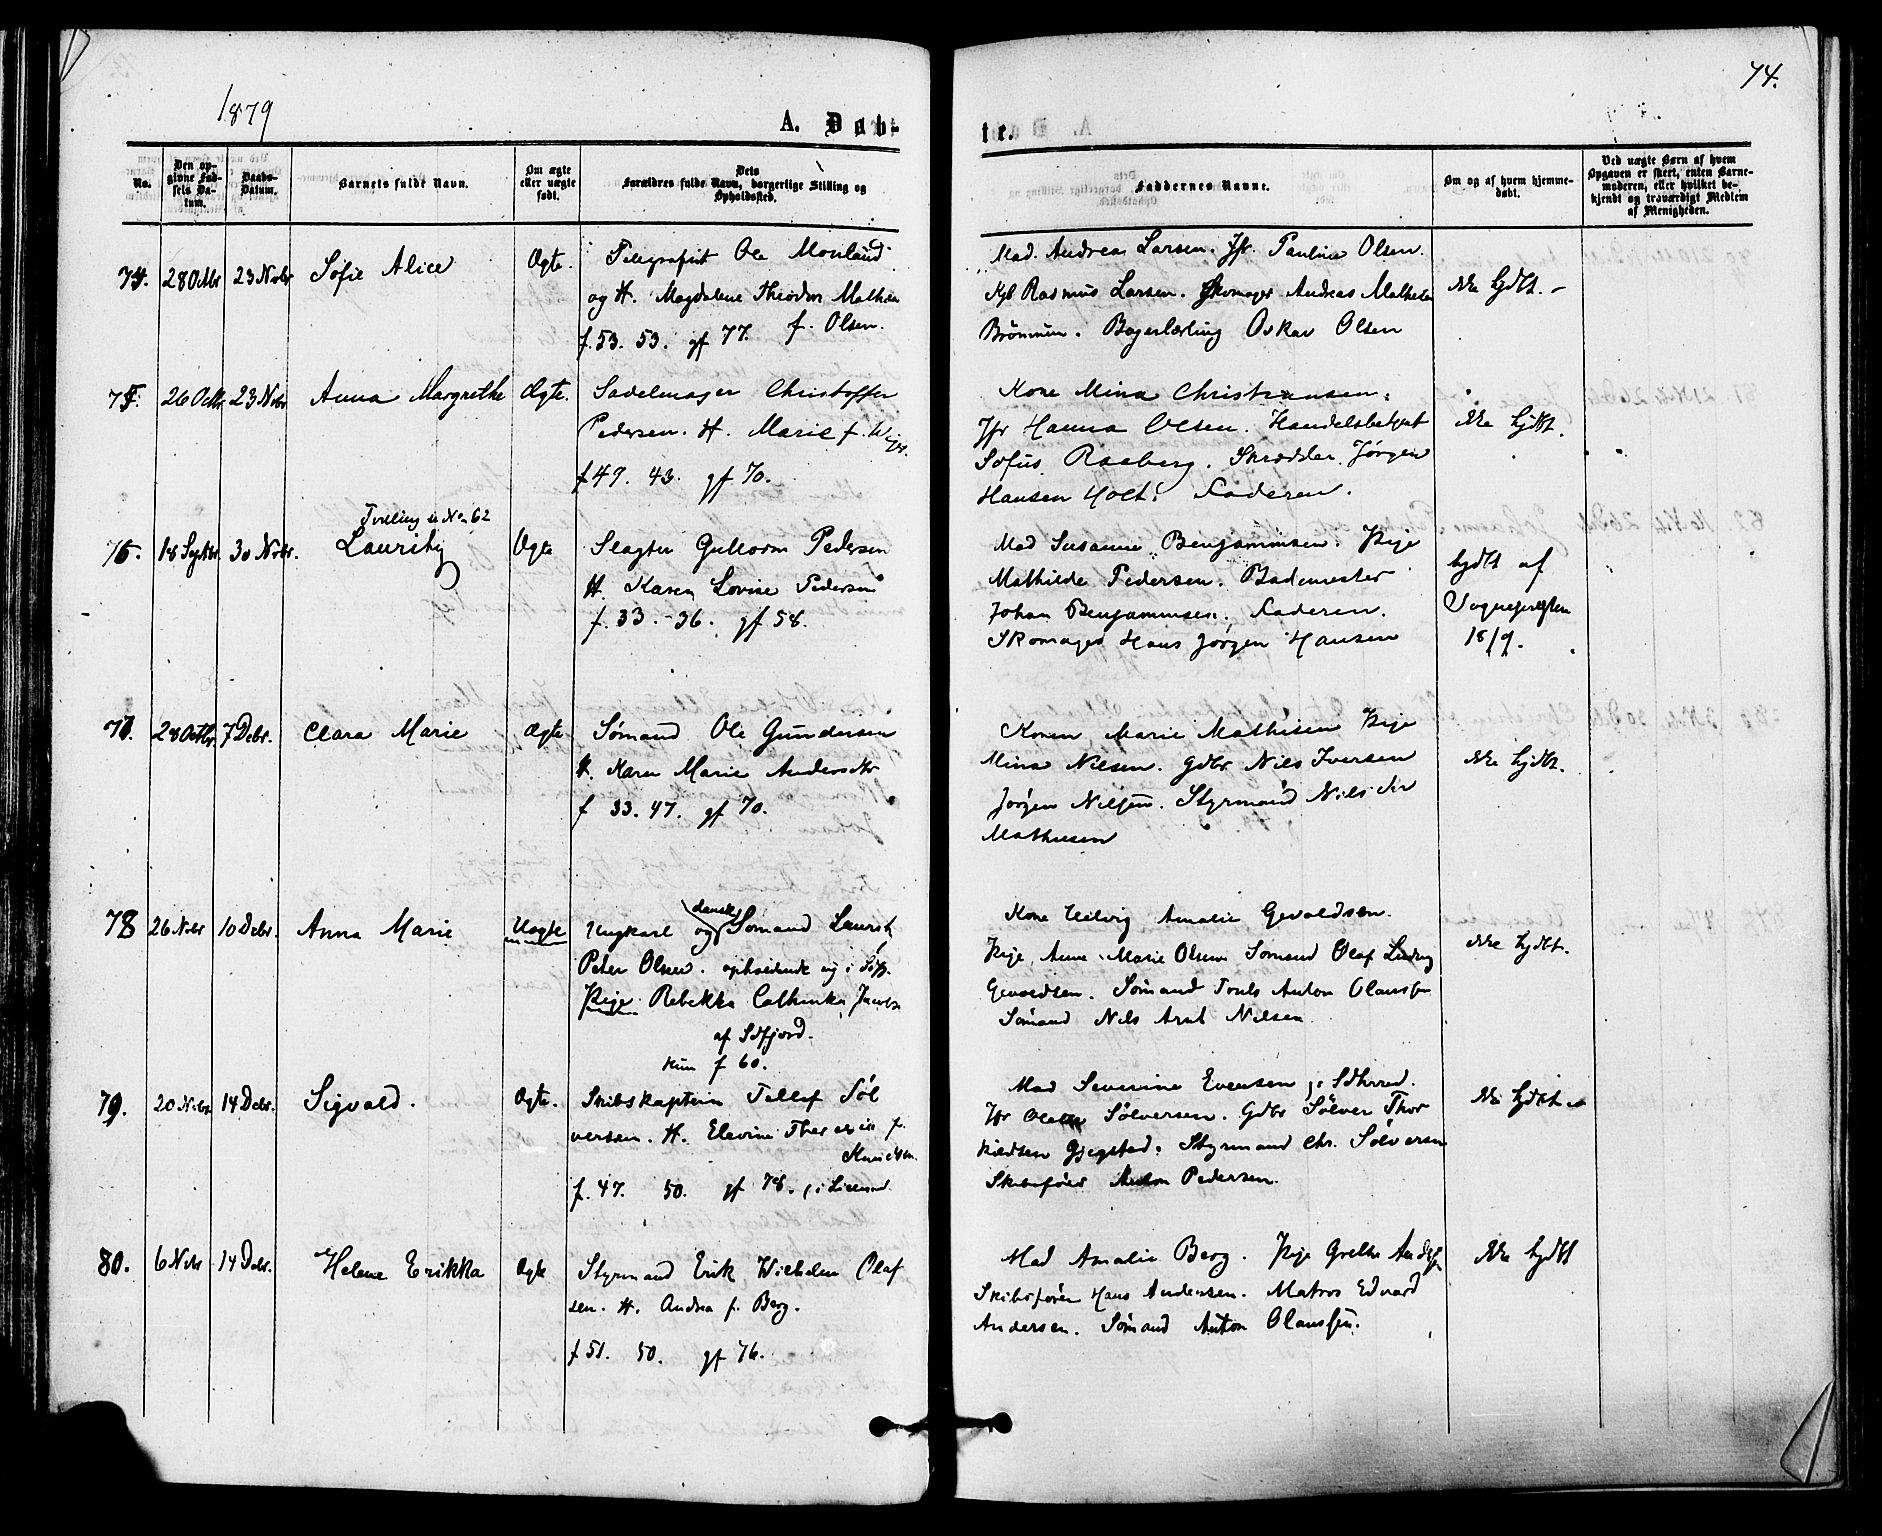 1879
74.
A. Døb-
te.
No.
Den op-
givne Fød-
sels Da-
tum.
Daabs-
Datum.
Barnets fulde Navn.
Om ægte
eller uægte
født.
Dets
Forældres fulde Navn, borgerlige Stilling og
Opholdssted.
Faddernes Navne.
Om og af hvem hjemme-
døbt.
Ved uægte Børn af hvem
Opgaven er skeet, enten Barne-
moderen, eller hvilket be-
kjendt og troværdigt Medlem
af Menigheden.
74. 28 Octbr 23 Novbr Sofie Alice Ægte.
Telegrafist Ole Monland
og H. Magdalene Theodora
f. 53. 53. gf 77. f. Olsen.
Mad. Andrea Larsen. Jfr. Pauline Olsen.
Rasmus Larsen. Skomager Andreas
Bagerlærling Oskar Olsen
ikke hjdbt. -
75. 26 Octbr 23 Novbr Anna Margrethe Ægte.
Sadelmager Christoffer
Pedersen. H. Marie f.
f 49. 43. gf 70.
Kone Mina Christensen.
Jfr Hanna Olsen. Handelsbetjent
Sofus Raaberg. Skrædder Jørgen
Hansen Holt. Faderen.
ikke hjdbt.
76. 18 Septbr. 30 Novbr.
Tvilling se No 62
Lauritz Ægte
Slagter Guttorm Pedersen
H. Karen Lovise Pedersen
f. 33. - 36. gf 58.
Mad Susanne Benjaminsen. Pige
Mathilde Pedersen. Bademester
Johan Benjaminsen. Faderen.
Skomager Hans Jørgen Hansen
hjdbt af
Sognepresten
18/9.
77. 28 Octbr. 7 Debr. Clara Marie Ægte
Sømand Ole Gundersen
H. Karen Marie Andersdtr
f 33. 47. gf 70.
Konen Marie Mathisen Pige
Mina Nilsen. Gdbr Nils Iversen
Jørgen Nilsen. Styrmand Nils
Mathisen
ikke hjdbt.
78 26 Novbr 10 Debr. Anna Marie Uægte
Ungkarl og dansk Sømand Laurits
Peter Olsen.
Pige Rebekka Cathinka Jacobs
af Idfjord.
kun f 60.
Kone Helvig Amalie Gevaldsen.
Pige Anne Marie Olsen Sømand Olaf Ludvig
Gevaldsen. Sømand Anton Olaussen
Sømand Nils Arnt Nilsen
ikke hjdbt.
79. 20 Novbr 14 Debr. Sigvald. Ægte.
Skibskaptein Tellef Søl
versen. H. Elevine f.
Knudsen.
f. 47. 50. gf 78.
Mad Severine Evensen
Jfr Sølversen. Gdbr Sølver Thor
kildsen Gjegstad. Styrmand Chr. Sølversen
Skibsfører Anton Pedersen.
ikke hjdbt
80. 6 Novbr 14 Debr. Helene Erikka Ægte
Styrmand Erik Wilhelm Olaf
sen. H. Andrea f. Berg.
f 51. 50. gf 76.
Mad Amalie Berg. Pige Grethe
Skibsfører Hans Andersen. Matros Edvard
Andersen. Sømand Anton Olaussen.
ikke hjdbt